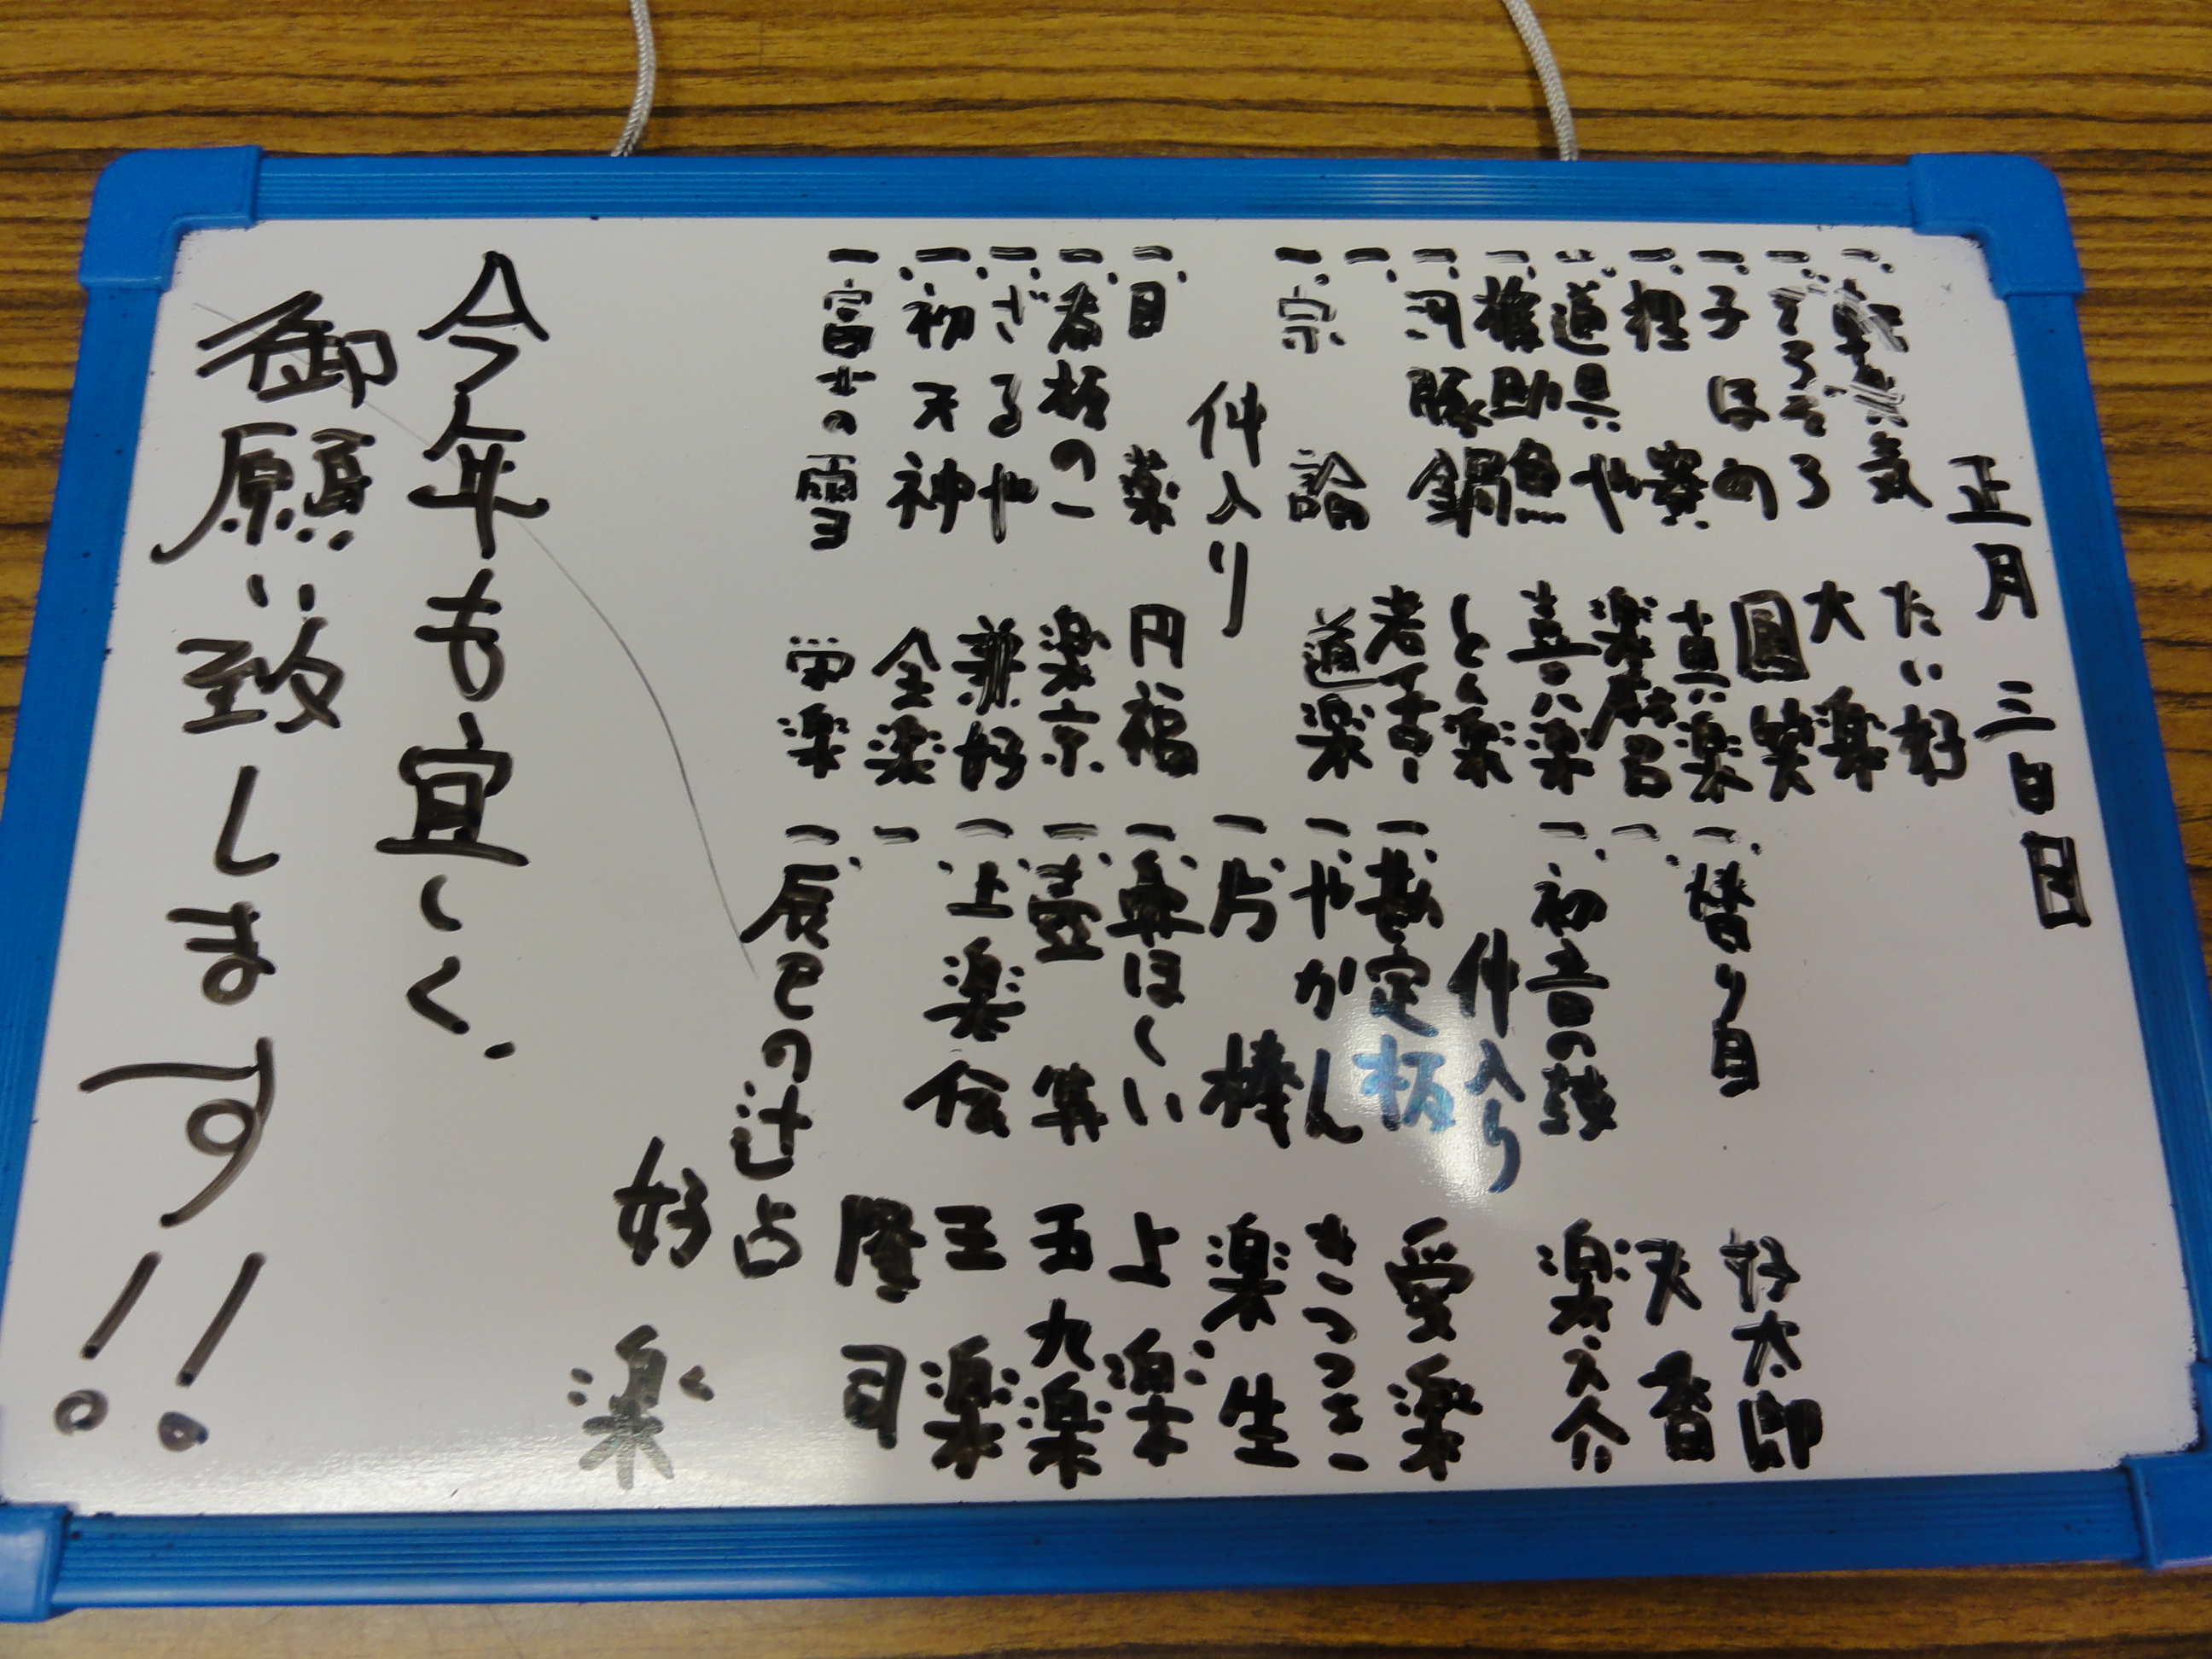 正月三日目
一、転失気 たい好
一、ぞろぞろ 大楽
一、子ほめ 圓笑
一、狸賽 真楽
一、道具や 楽麻呂
一、権助魚 喜八楽
一、河豚鍋 とん楽
一、
一、宗論 道楽
仲入り
一、目薬 円福
一、看板の一 楽京
一、ざるや 兼好
一、初天神 全楽
一、富士の雪 栄楽
一、替り目 好太郎
一、 香
一、初音の鼓 楽之介
仲入り
一、勘定板 愛楽
一、やかん きつつき
一、片棒 楽生
一、 ほしい 上楽
一、壺算 五九楽
一、上楽会 王楽
一 隆司
一、辰巳の辻占 好楽
今年も宜しく、
御願い致します!!